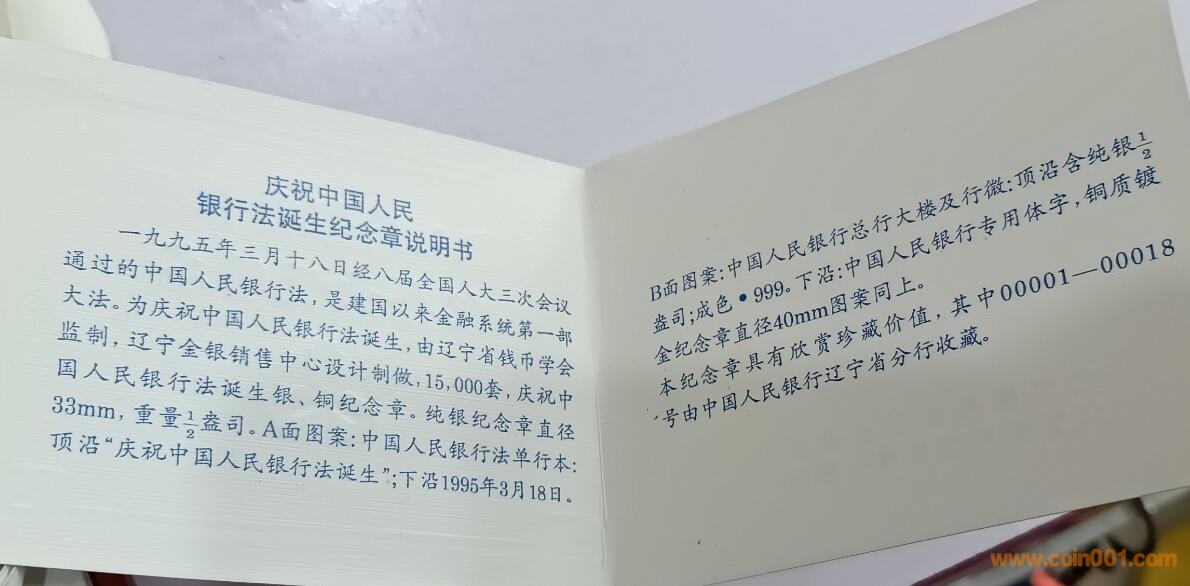 庆祝中国人民
银行法诞生纪念章说明书
一九九五年三月十八日经八届全国人大三次会议
通过的中国人民银行法，是建国以来金融系统第一部
大法。为庆祝中国人民银行法诞生，由辽宁省钱币学会
监制，辽宁金银销售中心设计制做，15,000套，庆祝中
国人民银行法诞生银、铜纪念章。纯银纪念章直径
33mm，重量1/2盎司。A面图案：中国人民银行法单行本：
顶沿“庆祝中国人民银行法诞生”；下沿1995年3月18日。
B面图案：中国人民银行总行大楼及行微：顶沿含纯银1/2
盎司；成色·999。下沿：中国人民银行专用体字，铜质镀
金纪念章直径40mm图案同上。
本纪念章具有欣赏珍藏价值，其中00001—00018
号由中国人民银行辽宁省分行收藏。
www.coin001.com